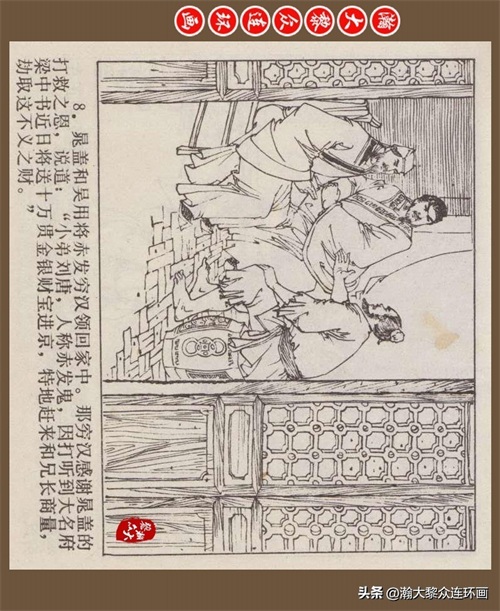 瀚大黎众连环画
8．晁盖和吴用将赤发穷汉领回家中。那穷汉感谢晁盖的
打救之恩，说道：“小弟刘唐，人称赤发鬼，因打听到大名府
梁中书近日将送十万贯金银财宝进京，特地赶来和兄长商量，
劫取这不义之财。”
头条 @瀚大黎众连环画